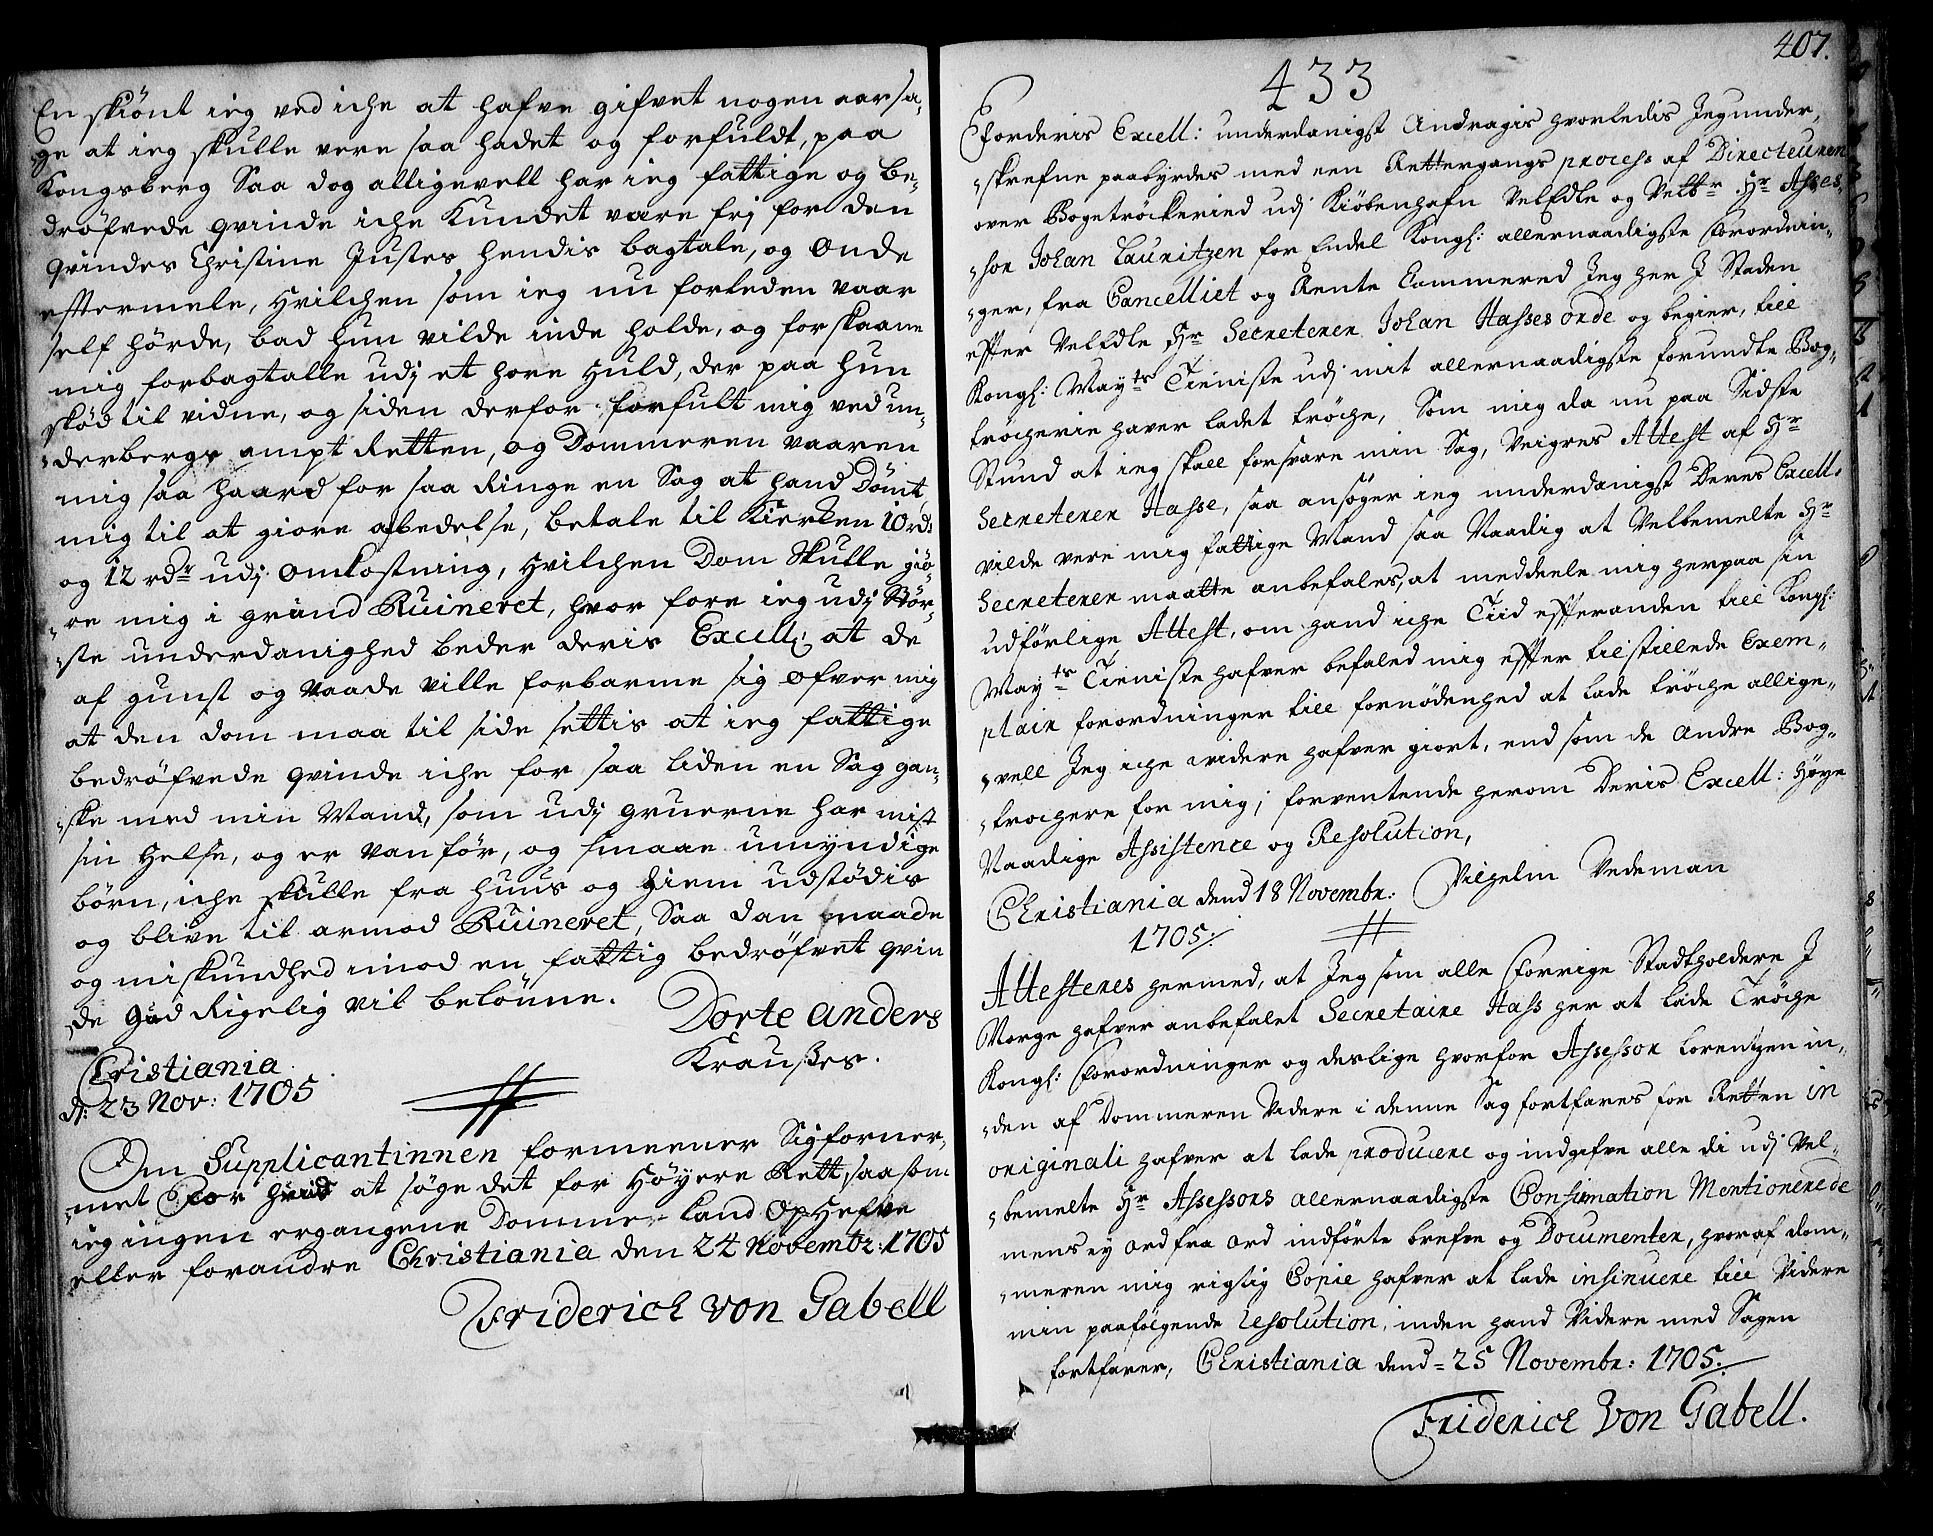 En skiönt ieg ved iche at hafve gifvet nogen aarsa,
ge at ieg skulle vere saa hadet og forfuldt, paa
Kongsberg Saa dog alligevell har ieg fattige og be,
dröfvede qvinde iche kundet være frj for den
qvindes Christine Justes hendis bagtale, og onde
eftermele, hvilchen som ieg nu forleden vaar
self hörde, bad hun vilde inde holde, og forskaane
mig forbagtalle udj et hore huld, der paa hun
skød til vidne, og siden derfor forfult mig ved un,
derbergs ampt Retten, og Dommeren vaaren
mig saa haard for saa Ringe en Sag at hand Dömt
mig til at giore afbedelse, betale til Kierken 10 rd
og 12 rdr udj omkostning, hvilchen Dom Skulle giö,
re mig i grund Ruineret, hvor fore ieg udj Stör,
ste underdanighed beder deris Excell: at de
af gunst og naade ville forbarme sig ofver mig
at den dom maa til side settis at ieg fattige
bedröfvede qvinde iche for saa liden en Sag gan,
ske med min Mand, som udj gruerne har mist
sin helse, og er vanför, og smaae umyndige
börn, iche skulle fra huus og hiem udstödis
og blive til armod Ruineret, Saa dan naade
og miskundhed imod en fattig bedröfvet qvin
de gud Rigelig vil belönne.
Dorte anders
Kraußes.
Christiania
d: 23 Nov: 1705
Om Supplicantinnen formeener Sig forner,
met for hvid at söge det for Höyere Rett, saasom
ieg ingen ergangene Domme kand Ophefve
eller forandre Christiania den 24 Novembr: 1705
Friderich von Gabell
407.
433
For deris Excell: underdanigst Andragis hvorledis Jeg under,
skrefne paabyrdes med een Rettergangs process af Directeuren
over Bogetröckeried udj Kiöbenhafn VelEdle og Velbr Hr Asses,
sor Johan Lauritzen for Endel Kongl: allernaadigste Forordnin,
ger, fra Cancelliet og Rente Cammered Jeg her J Staden
efter VelEdle Hr Secreteren Johan Hasses Orde og begier, till
Kongl: Mayts Tieniste udj mit allernaadigste forundte Bog,
tröcherie haver ladet tröche, Som mig da nu paa Sidste
Stund at ieg skall forsvare min Sag, Veigres Attest af Hr
Secreteren Hasse, saa ansöger ieg underdanigst Deres Excell:
vilde vere mig fattige Mand saa Naadig at Velbemelte Hr
Secreteren maatte anbefales, at meddeele mig herpaa sin
udförlige Attest, om hand iche Tiid efter anden till Kongl:
Mayts Tieniste hafver befaled mig efter tilstillede Exem,
plair forordninger till fornödenhed at lade tröche allige,
vell Jeg iche widere hafver giort, end som de Andre Bog,
trochere for mig; forventende herom Deris Excell: Höye
Naadige Assistence og Resolution,
Christiania dend 18 Novembr: Vilhelm Wedeman
1705.
Attesteres hermed, at Jeg som alle Forrige Stadtholdere J
Norge hafver anbefalet Secretaire Hass her at lade Tröche
Kongl: Forordninger og deslige hvorfor Assessor Lorentzen in,
den af Dommeren Videre i denne Sag fortfares for Retten in
originali hafver at lade producere og indgifve alle di udj Vel,
bemelte Hr Assessors allernaadigste Confirmation Mentionerede
mens ey ord fra ord indförte brefve og Documenter, hvoraf dom,
meren mig rigtig Copie hafver at lade insinuere till Videre
min paafölgende resolution, inden hand Videre med Sagen
fortfarer, Christiania dend 25 Novembr: 1705.
Friderich Von Gabell.